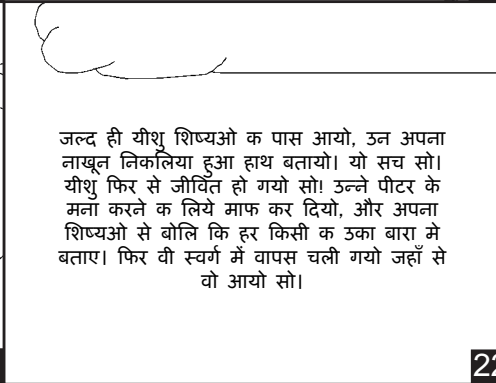 जल्द ही यीशु शिष्यओ क पास आयो, उन अपना
नाखून निकलिया हुआ हाथ बतायो। यो सच सो।
यीशु फिर से जीवित हो गयो सो! उन्ने पीटर के
मना करने क लिये माफ कर दियो, और अपना
शिष्यओ से बोलि कि हर किसी क उका बारा मे
बताए। फिर वी स्वर्ग में वापस चली गयो जहाँ से
वो आयो सो।